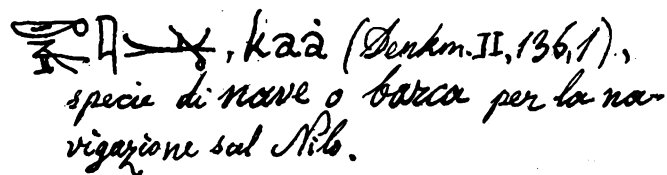 , kaà (Denkm. II, 136, 1),
specie di nave o barca per la na-
vigazione sul Nilo.